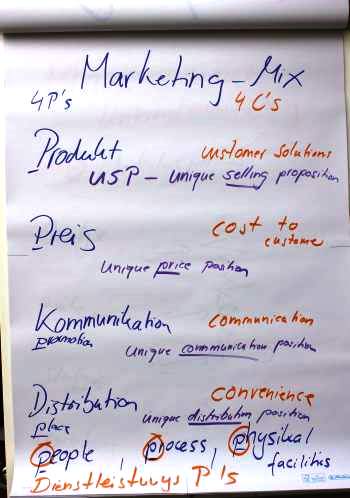 Marketing-Mix
4P's 4 C's
Produkt customer solutions
USP - unique selling proposition
Preis cost to
customer
unique price position
Kommunikation communication
promotion
unique communication position
Distribution convenience
place unique distribution position
people, process, physikal
facilities
Dienstleistungs P's